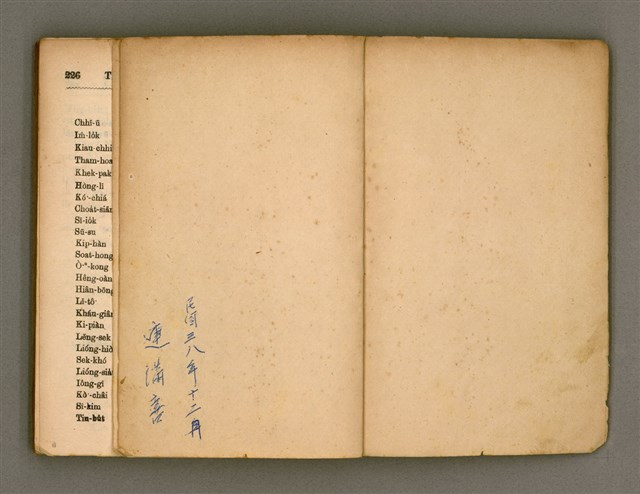 226 T
Chhî-ū
Im-lo̍k
Kiau-chhi
Tham-hoa
Khek-pak
Hông-lī
Kó͘-chiá
Choát-siān
Sī-io̍k
Sū-su
Kip-hàn
Soat-hong
Ò-ⁿ-kong
Hêng-oàn
Hiân-bōng
Lē-tō͘
Khán-giân
Ki-piàn
Lêng-sek
Lióng-hiō
Sek-khó
Lióng-siá
Iông-gī
Kò͘-chãi
Si-kim
Tín-bu̍t
民國三八年十二月
連滿喜